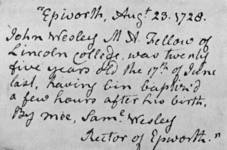 "Epworth, Augt. 23. 1728.
John Wesley M A Fellow of
Lincoln College, was twenty
five years old the 17th of June
last, having bin baptiz'd
a few hours after his birth.
By mee, Saml. Wesley
Rector of Epworth."